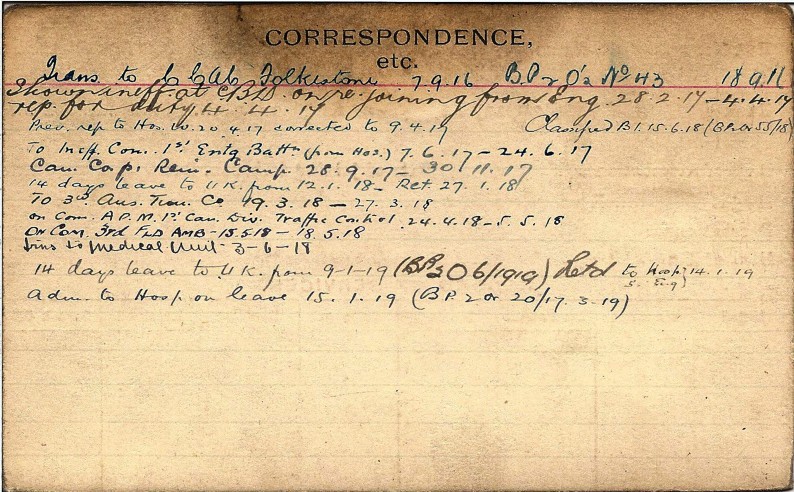 CORRESPONDENCE,
etc.
Trans to C.C.A.C. Folkestone 7.9.16 B.P. 2 O's No 43 18 9 16
Shown ineff. at C.B.D. on re-joining from Eng. 28.2.17 - 4.4.17
rep. for duty 4.4.17
Prev. rep to Hos. 20.4.17 corrected to 9.4.17 Classified B1.15.6.18 (B.P.2 Or 55/18)
To Ineff. Com. 1st Entg Battn (from Hos.) 7.6.17 - 24.6.17
Can. Corps. Rein. Camp. 28.9.17 - 30 11.17
14 days leave to U.K. from 12.1.18 - Ret. 27.1.18
To 3rd Aus. Tun. Co 19.3.18 - 27.3.18
on Com. A.P.M. 1st Can. Div. Traffic Control 24.4.18 - 5.5.18
On Com. 3rd FLD AMB - 15.5.18 - 18.5.18
to Medical Unit 3-6-18
14 days leave to U.K. from 9-1-19 (B.P. 2 O 6/1919) to Hosp 14.1.19
Adm. to Hosp on leave 15.1.19 (B.P. 2 Or 20/17.3.19)